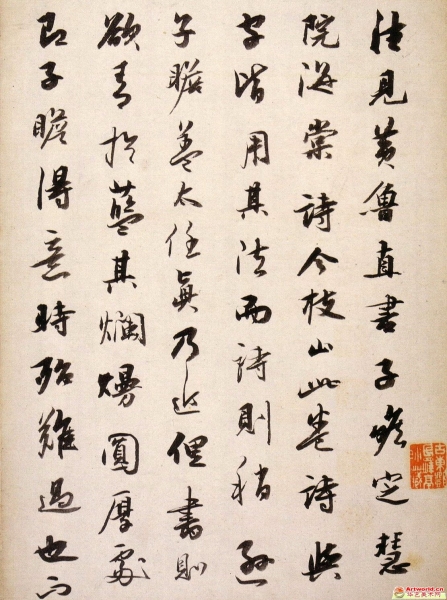 往見黄魯直書子瞻定慧
院海棠詩今枝山此卷詩與
字皆用其法而詩則稍遜
子瞻蓋太任真乃近俚書則
欲青於藍其爛熳圓厚處
即子瞻得意時殆難過也而
Artworld.cn
华艺美术网